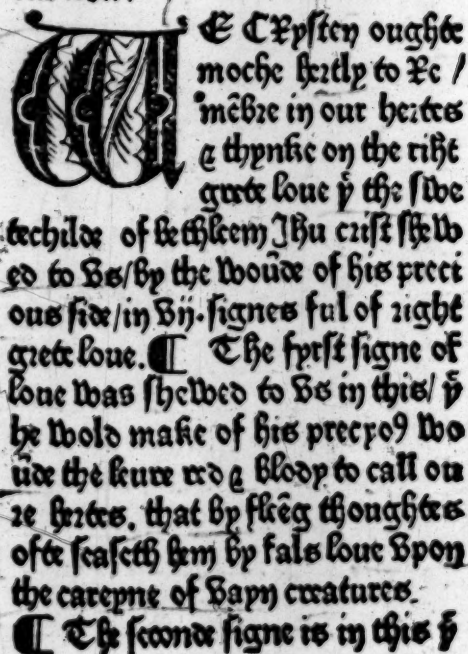 WE CRysten oughte
moche hertly to Re /
mēbre in our hertes
⁊ thynke on the riht
grete loue ẏ the swe
techilde of bethleem Jhu crist shew
ed to vs/by the woūde of his preci
ous side/in vij. signes ful of right
grete loue. ¶ The fyrst signe of
loue was shewed to vs in this/ ẏ
he wold make of his precyoꝯ wo
ūde the leure red ⁊ blody to call ou
re hertes. that by fleēg thoughtes
ofte seaseth hem by fals loue vpon
the careyne of vayn creatures.
¶ The seconde signe is in this ẏ